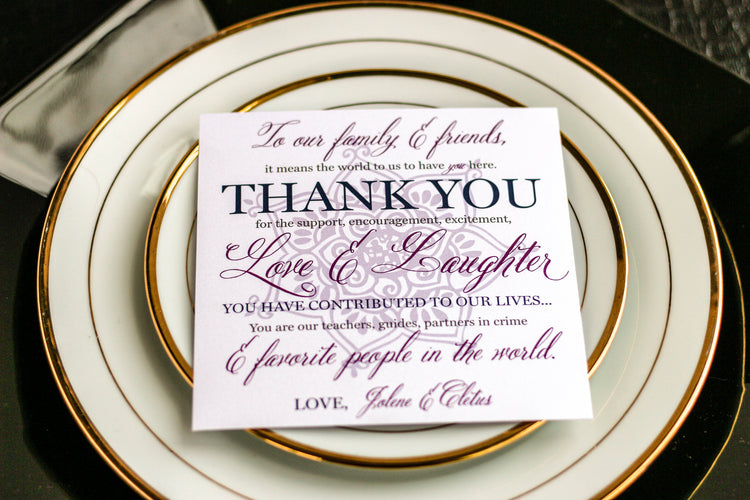 To our family & friends,
it means the world to us to have you here.
THANK YOU
for the support, encouragement, excitement,
Love & Laughter
YOU HAVE CONTRIBUTED TO OUR LIVES...
You are our teachers, guides, partners in crime
& favorite people in the world.
LOVE, Jolene & Cletus